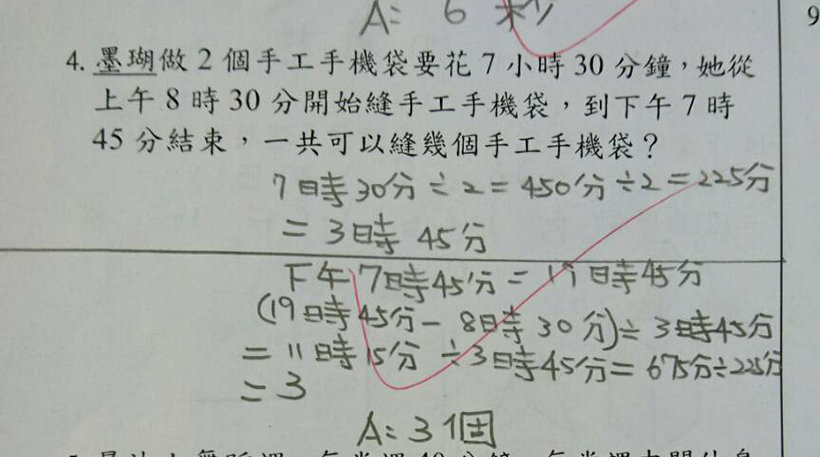 A: 6 秒
9
4. 墨瑚做 2 個手工手機袋要花 7 小時 30 分鐘，她從
上午 8 時 30 分開始縫手工手機袋，到下午 7 時
45 分結束，一共可以縫幾個手工手機袋？
7時30分÷2=450分÷2=225分
=3時45分
下午7時45分=19時45分
(19時45分-8時30分)÷3時45分
=11時15分÷3時45分=675分÷225分
=3
A:3個